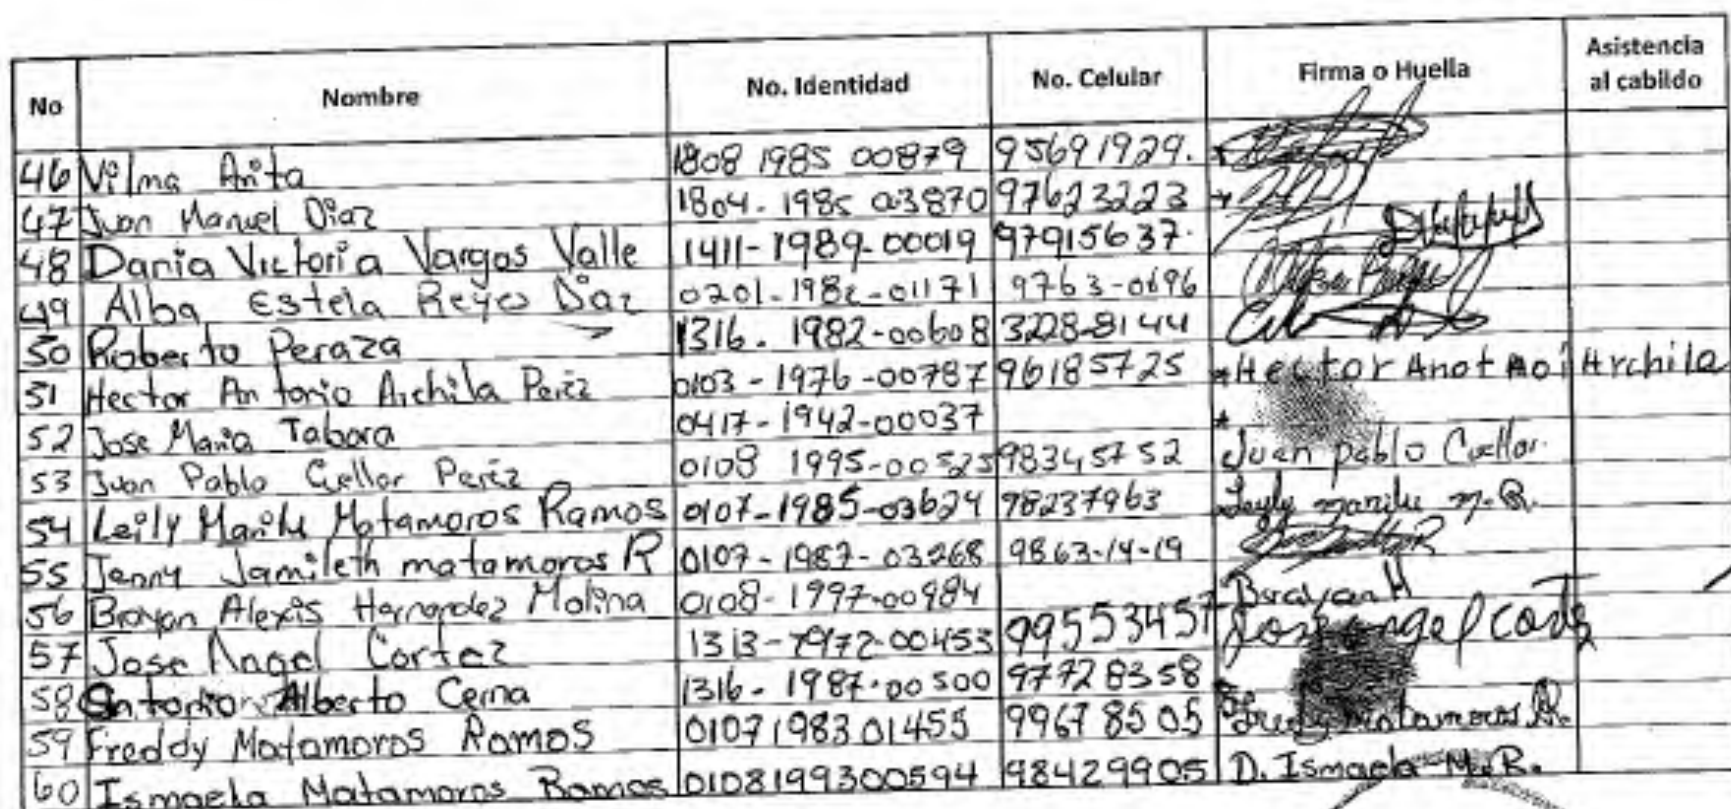 No Nombre No. Identidad No. Celular Firma o Huella Asistencia al cabildo
46 Vilma Anita 1808 1985 00879 95691929.
47 Juan Manuel Diaz 1804-1985 03870 97623223
48 Dania Victoria Vargas Valle 1411-1989-00019 97915637.
49 Alba Estela Reyes Diaz 0201-1982-01171 9763-0696
50 Roberto Peraza 1316-1982-00608 3228-8144
51 Hector Antonio Archila Perez 0103-1976-00787 96185725 *Hector Anot Aoi Archila
52 Jose Maria Tabora 0417-1942-00037 *
53 Juan Pablo Cuellar Perez 0108 1995-00525 98345752 Juan pablo Cuellar.
54 Leily Marilu Matamoros Ramos 0107-1985-03624 98237963 Leyly marilu M.R.
55 Jenny Jamileth matamoros R 0107-1987-03268 9863-14-19
56 Brayan Alexis Hernandez Molina 0108-1997-00984 Brayan H
57 Jose Angel Cortez 1313-1972-00453 99553457 Jose angel Cortez
58 Alberto Cerna 1316-1987-00500 97728358
59 Freddy Matamoros Ramos 0107198301455 99678505 Fredy Matamoros R.
60 Ismaela Matamoros Ramos 0108199300594 98429905 D. Ismaela M.R.